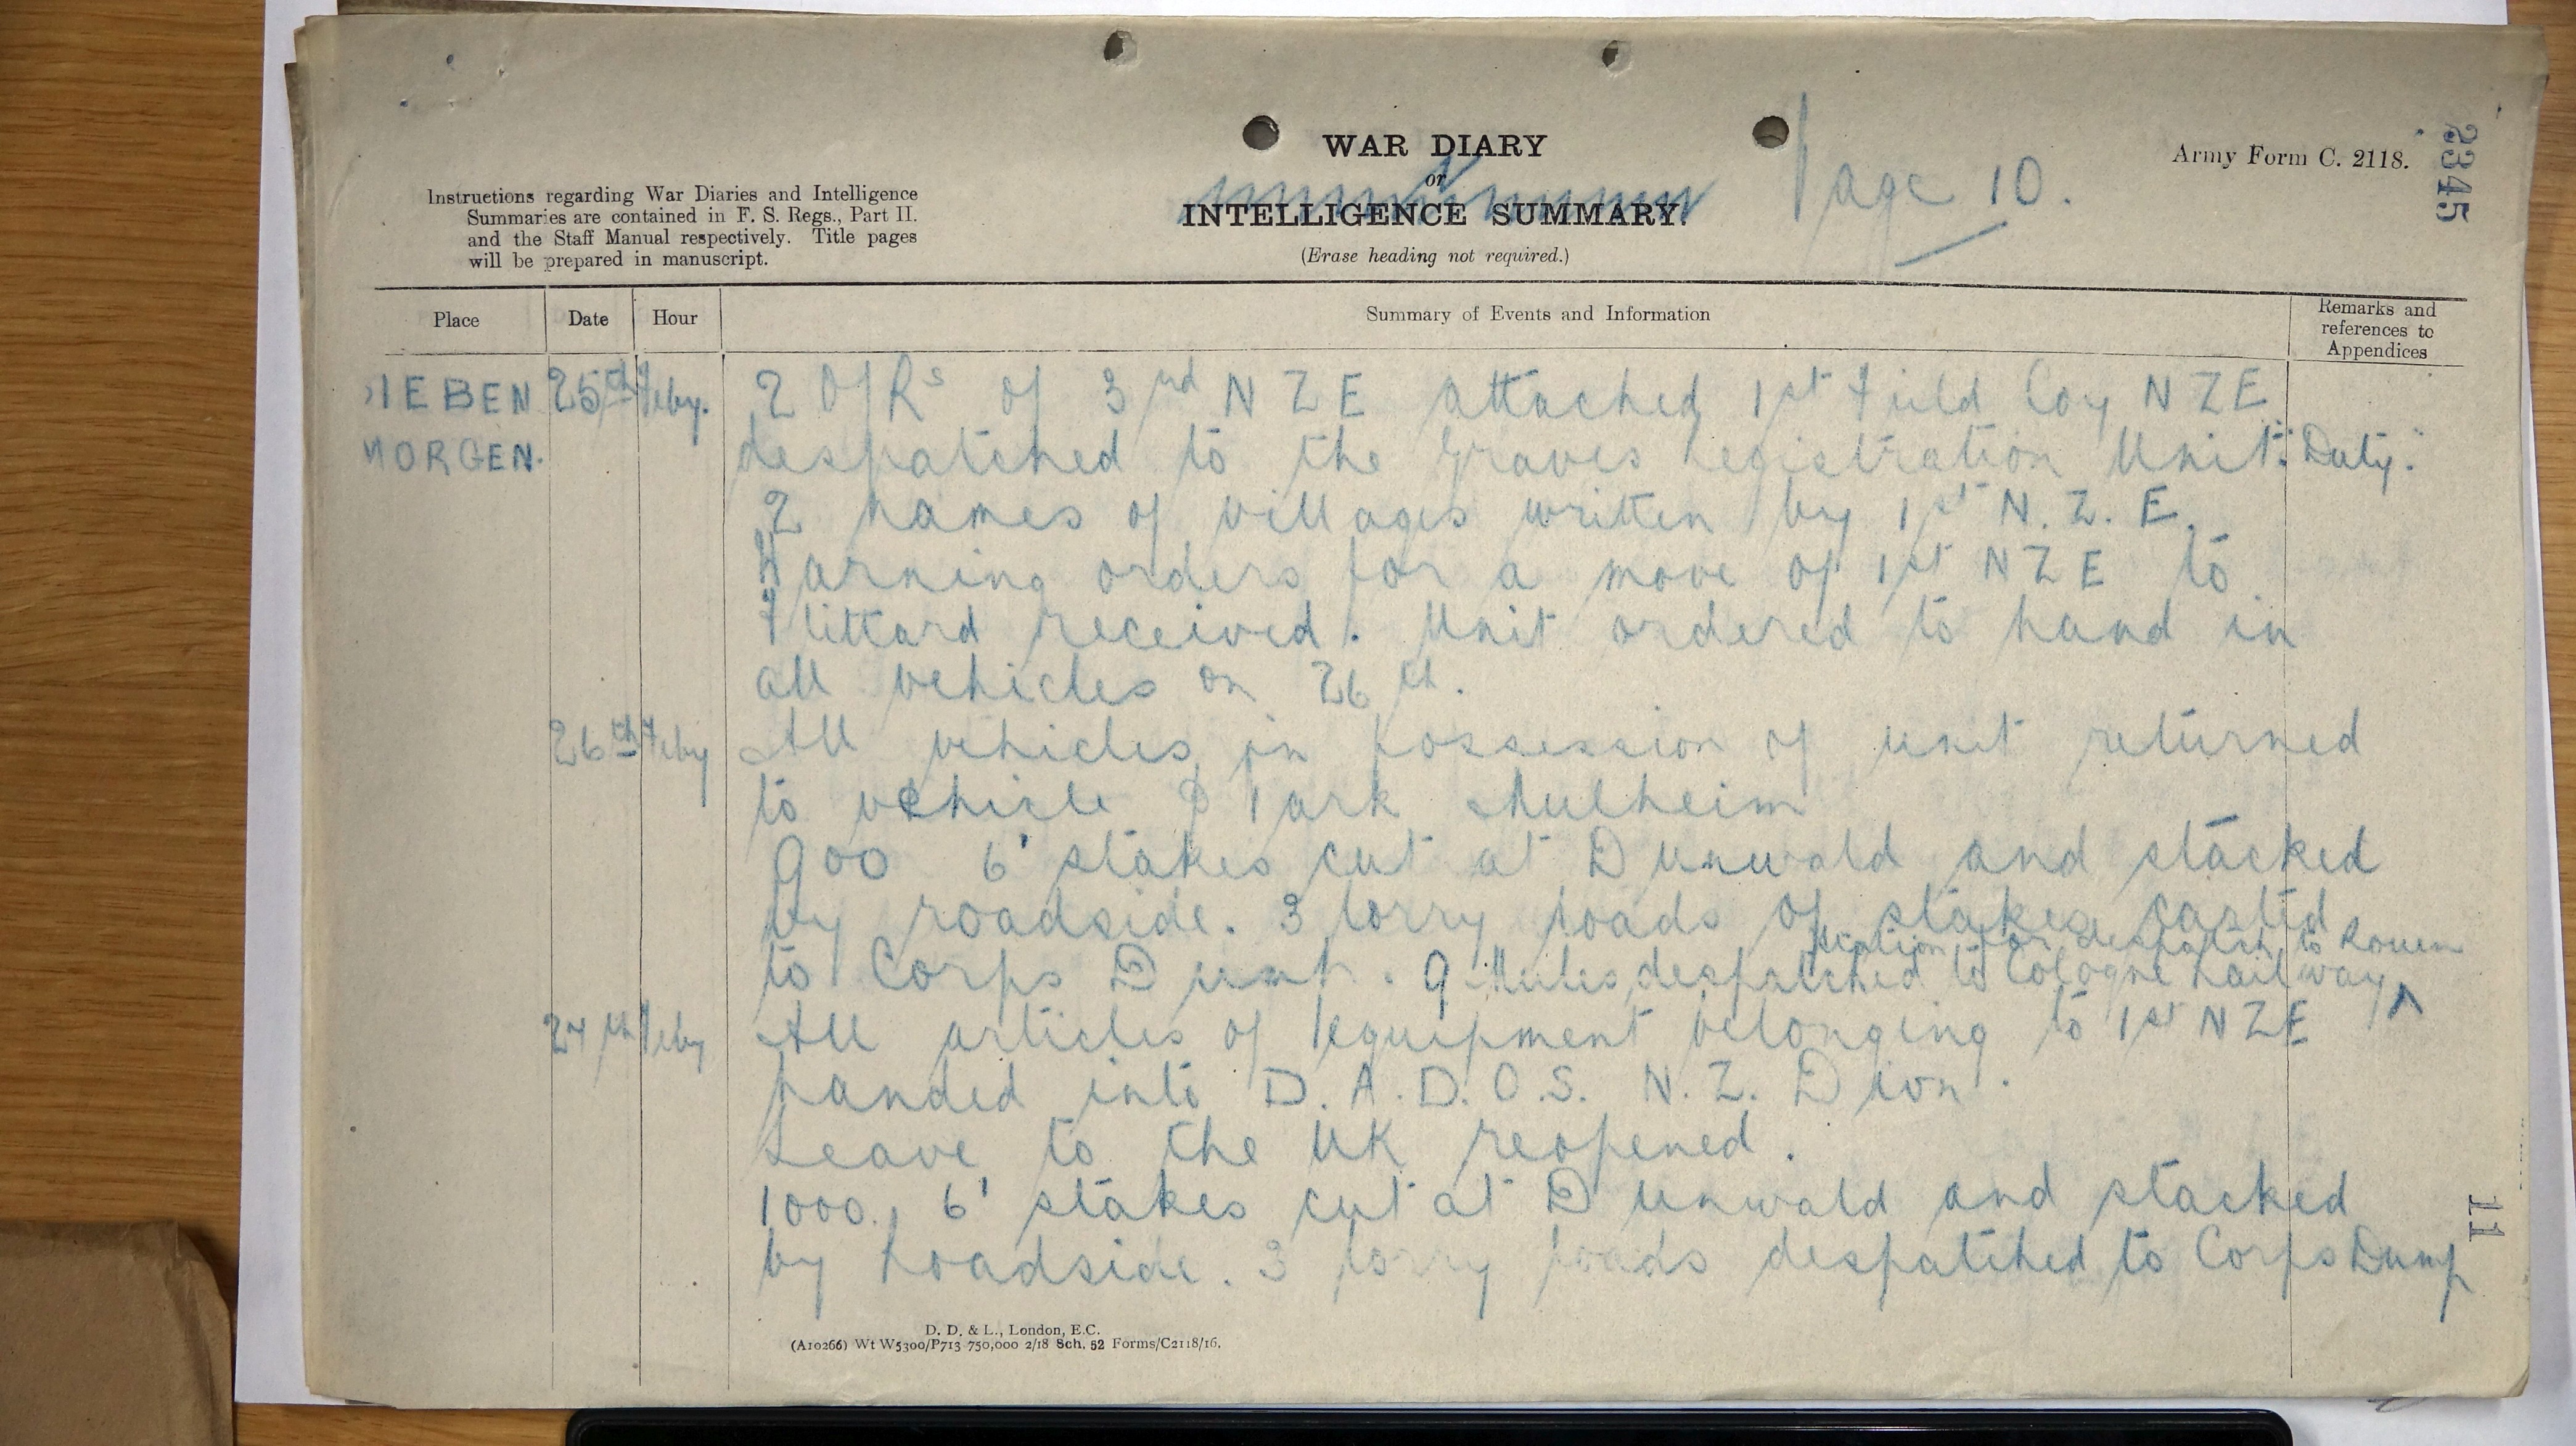 WAR DIARY
or
INTELLIGENCE SUMMARY.
(Erase heading not required.)
Page 10.
Army Form C. 2118.
2345
Instructions regarding War Diaries and Intelligence
Summaries are contained in F. S. Regs., Part II.
and the Staff Manual respectively. Title pages
will be prepared in manuscript.
Place Date Hour Summary of Events and Information Remarks and references to Appendices
SIEBEN 25th Feby. 2 O/Rs of 3rd N Z E attached 1st Field Coy N Z E
MORGEN. despatched to the Graves Registration Unit. "Duty."
2 names of villages written by 1st N. Z. E.
Warning orders for a move of 1st N Z E to
Flittard received. Unit ordered to hand in
all vehicles on 26th.
26th Feby All vehicles in possession of unit returned
to vehicle Park Mulheim
900 6' stakes cut at Dunwald and stacked
by roadside. 3 lorry loads of stakes carted
to Corps . 9 Mules despatched to Cologne Railway
Station for despatch to Rouen
27th Feby All articles of equipment belonging to 1st N Z E
handed into D. A. D. O. S. N. Z. Divn.
Leave to the UK reopened.
1000. 6' stakes cut at Dunwald and stacked
by Roadside. 3 lorry loads despatched to Corps Dump
11
D. D. & L., London, E.C.
(A10266) Wt W5300/P713 750,000 2/18 Sch. 52 Forms/C2118/16.